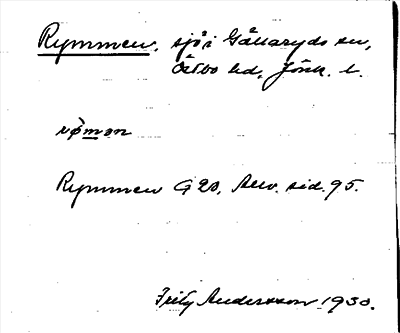 Rymmen, sjö i Gällaryds sn,
Östbo hd, Jönk. l.
rømən
Rymmen G 20, Anv. sid. 95.
Fritz Andersson 1930.